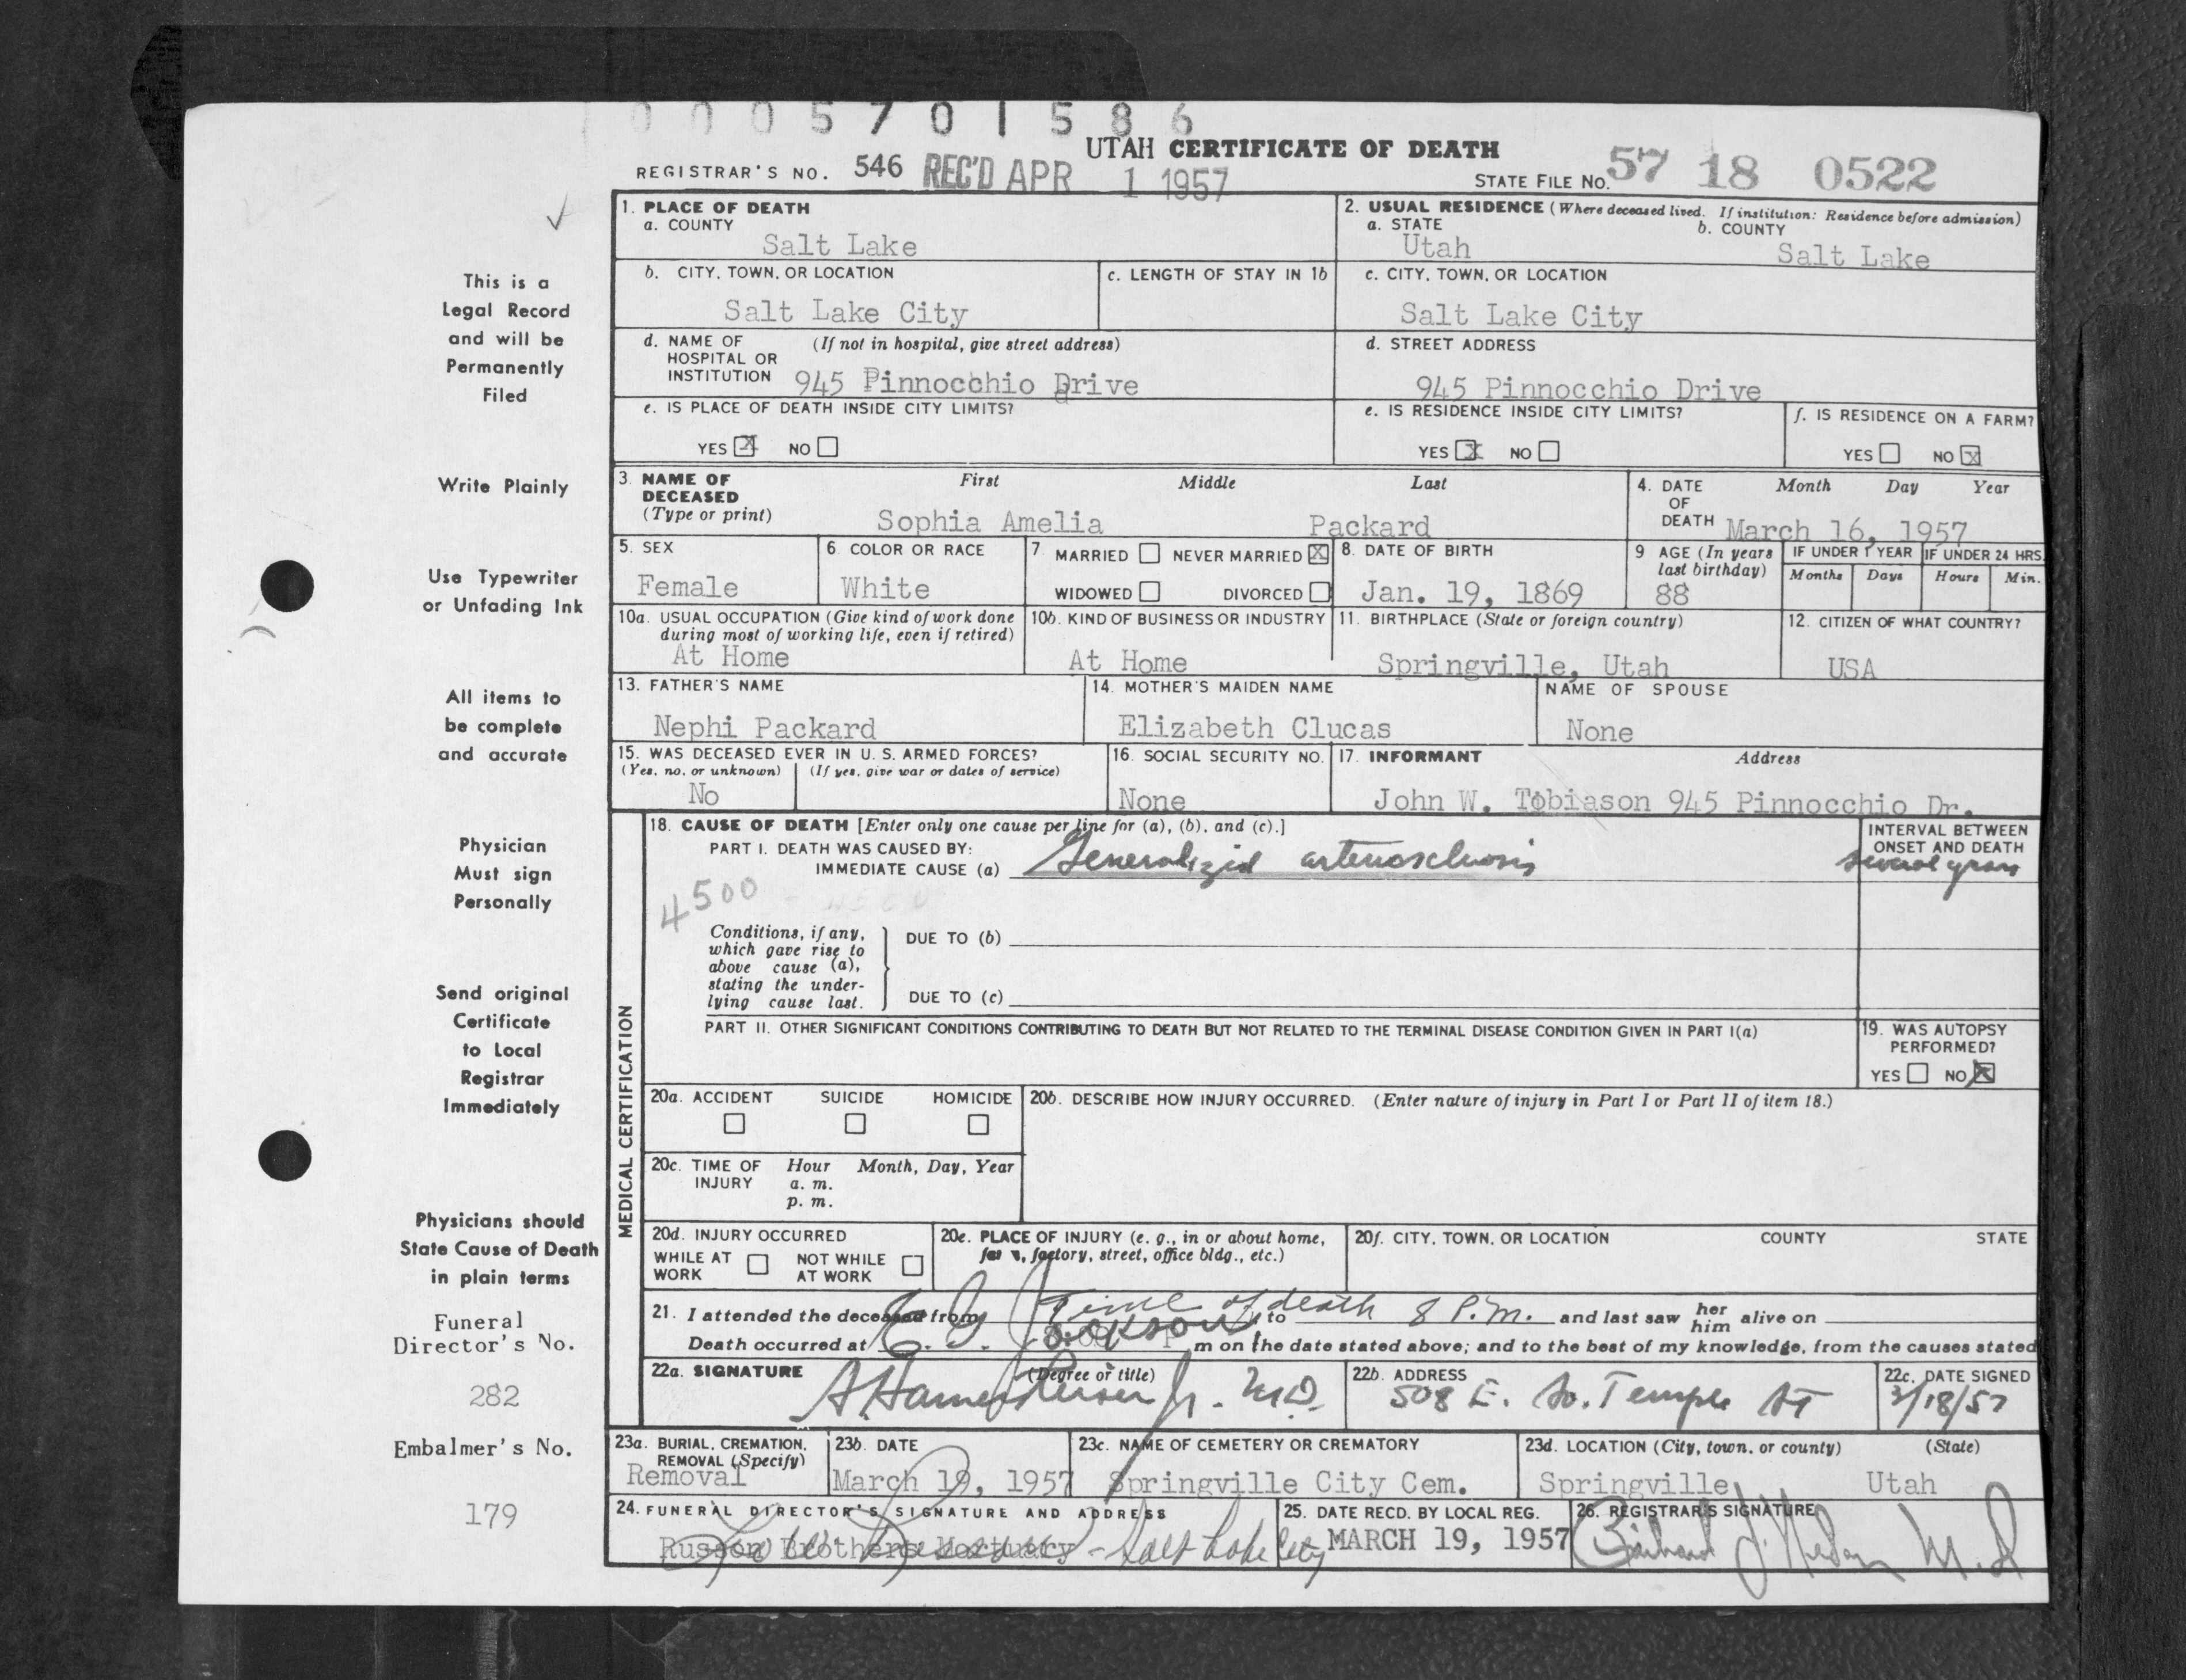 0005701586
UTAH CERTIFICATE OF DEATH
REGISTRAR'S NO. 546 REC'D APR 1 1957
STATE FILE NO. 57 18 0522
1. PLACE OF DEATH
a. COUNTY
Salt Lake
2. USUAL RESIDENCE (Where deceased lived. If institution: Residence before admission)
a. STATE b. COUNTY
Utah Salt Lake
b. CITY, TOWN, OR LOCATION
Salt Lake City
c. LENGTH OF STAY IN 1b
c. CITY, TOWN, OR LOCATION
Salt Lake City
d. NAME OF (If not in hospital, give street address)
HOSPITAL OR
INSTITUTION 945 Pinnocchio Drive
d. STREET ADDRESS
945 Pinnocchio Drive
e. IS PLACE OF DEATH INSIDE CITY LIMITS?
YES X NO
e. IS RESIDENCE INSIDE CITY LIMITS?
YES X NO
f. IS RESIDENCE ON A FARM?
YES NO X
3. NAME OF DECEASED
(Type or print)
First Middle Last
Sophia Amelia Packard
4. DATE OF DEATH
Month Day Year
March 16, 1957
5. SEX
Female
6. COLOR OR RACE
White
7. MARRIED NEVER MARRIED X
WIDOWED DIVORCED
8. DATE OF BIRTH
Jan. 19, 1869
9 AGE (In years
last birthday)
88
IF UNDER 1 YEAR
Months Days
IF UNDER 24 HRS.
Hours Min.
10a. USUAL OCCUPATION (Give kind of work done
during most of working life, even if retired)
At Home
10b. KIND OF BUSINESS OR INDUSTRY
At Home
11. BIRTHPLACE (State or foreign country)
Springville, Utah
12. CITIZEN OF WHAT COUNTRY?
USA
13. FATHER'S NAME
Nephi Packard
14. MOTHER'S MAIDEN NAME
Elizabeth Clucas
NAME OF SPOUSE
None
15. WAS DECEASED EVER IN U. S. ARMED FORCES?
(Yes, no, or unknown) (If yes, give war or dates of service)
No
16. SOCIAL SECURITY NO.
None
17. INFORMANT Address
John W. Tobiason 945 Pinnocchio Dr.
MEDICAL CERTIFICATION
18. CAUSE OF DEATH [Enter only one cause per line for (a), (b), and (c).]
PART I. DEATH WAS CAUSED BY:
IMMEDIATE CAUSE (a) Generalized arteriosclerosis
INTERVAL BETWEEN
ONSET AND DEATH
several years
4500
Conditions, if any,
which gave rise to
above cause (a),
stating the under-
lying cause last.
DUE TO (b)
DUE TO (c)
PART II. OTHER SIGNIFICANT CONDITIONS CONTRIBUTING TO DEATH BUT NOT RELATED TO THE TERMINAL DISEASE CONDITION GIVEN IN PART I(a)
19. WAS AUTOPSY
PERFORMED?
YES NO X
20a. ACCIDENT SUICIDE HOMICIDE
20b. DESCRIBE HOW INJURY OCCURRED. (Enter nature of injury in Part I or Part II of item 18.)
20c. TIME OF INJURY
Hour Month, Day, Year
a. m.
p. m.
20d. INJURY OCCURRED
WHILE AT WORK NOT WHILE AT WORK
20e. PLACE OF INJURY (e. g., in or about home,
farm, factory, street, office bldg., etc.)
20f. CITY, TOWN, OR LOCATION COUNTY STATE
21. I attended the deceased from Time of death to 8 P.M. and last saw her him alive on
Death occurred at m on the date stated above; and to the best of my knowledge, from the causes stated
22a. SIGNATURE (Degree or title)
Jr. M.D.
22b. ADDRESS
508 E. So. Temple St
22c. DATE SIGNED
3/18/57
23a. BURIAL, CREMATION,
REMOVAL (Specify)
Removal
23b. DATE
March 19, 1957
23c. NAME OF CEMETERY OR CREMATORY
Springville City Cem.
23d. LOCATION (City, town, or county) (State)
Springville, Utah
24. FUNERAL DIRECTOR'S SIGNATURE AND ADDRESS
Russon Brothers Mortuary - Salt Lake City
25. DATE RECD. BY LOCAL REG.
MARCH 19, 1957
26. REGISTRAR'S SIGNATURE
M.D.
This is a
Legal Record
and will be
Permanently
Filed
Write Plainly
Use Typewriter
or Unfading Ink
All items to
be complete
and accurate
Physician
Must sign
Personally
Send original
Certificate
to Local
Registrar
Immediately
Physicians should
State Cause of Death
in plain terms
Funeral
Director's No.
282
Embalmer's No.
179